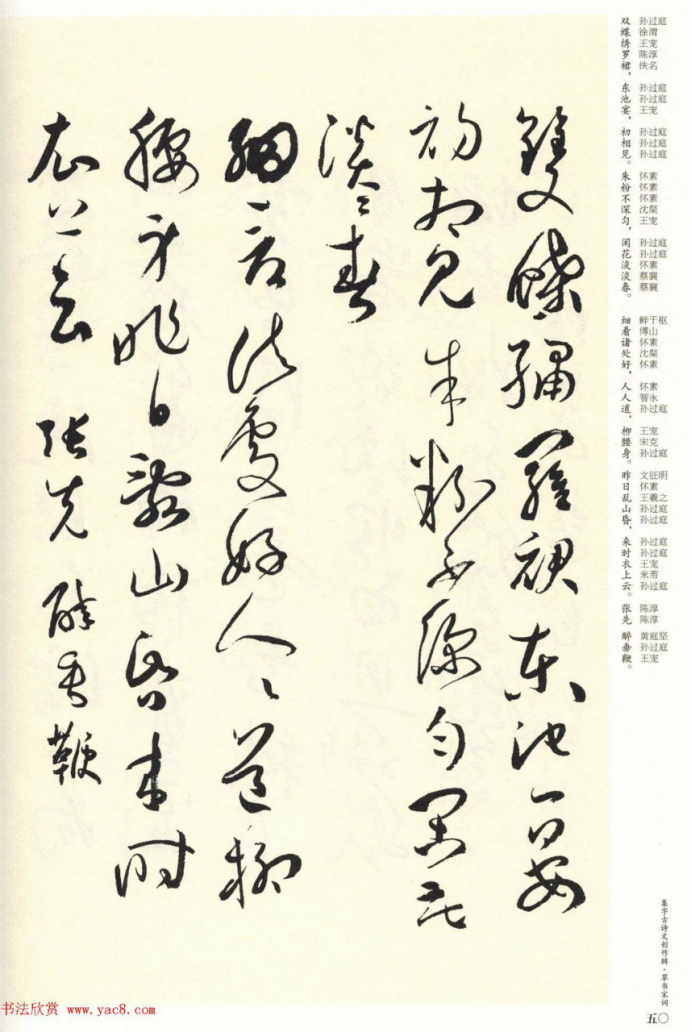 雙蝶繡羅裙東池宴
初相見朱粉不深勻閑花
淡淡春
細看諸處好人人道柳
腰身昨日亂山昏来時
衣上雲 張先醉垂鞭
双蝶绣罗裙，东池宴，初相见。朱粉不深匀，闲花淡淡春。细看诸处好，人人道，柳腰身。昨日乱山昏，来时衣上云。张先 醉垂鞭。
孙过庭
徐渭
王宠
陈淳
佚名
孙过庭
孙过庭
王宠
孙过庭
孙过庭
孙过庭
怀素
怀素
怀素
沈粲
王宠
孙过庭
孙过庭
怀素
蔡襄
蔡襄
鲜于枢
傅山
怀素
沈粲
怀素
怀素
智永
孙过庭
王宠
宋克
孙过庭
文征明
怀素
王羲之
孙过庭
孙过庭
孙过庭
孙过庭
王宠
米芾
孙过庭
陈淳
陈淳
黄庭坚
孙过庭
王宠
集字古诗文创作辑·草书宋词
五〇
书法欣赏 www.yac8.com